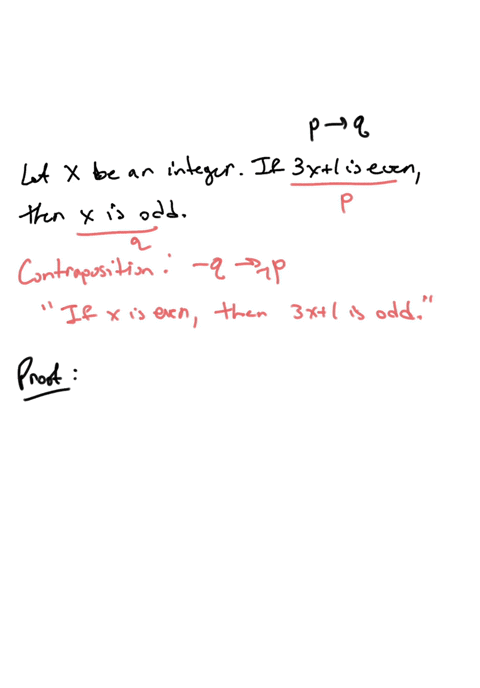 p→q
Let x be an integer. If 3x+1 is even,
p
then x is odd.
q
Contraposition: ¬q → ¬p
"If x is even, then 3x+1 is odd."
Proof: